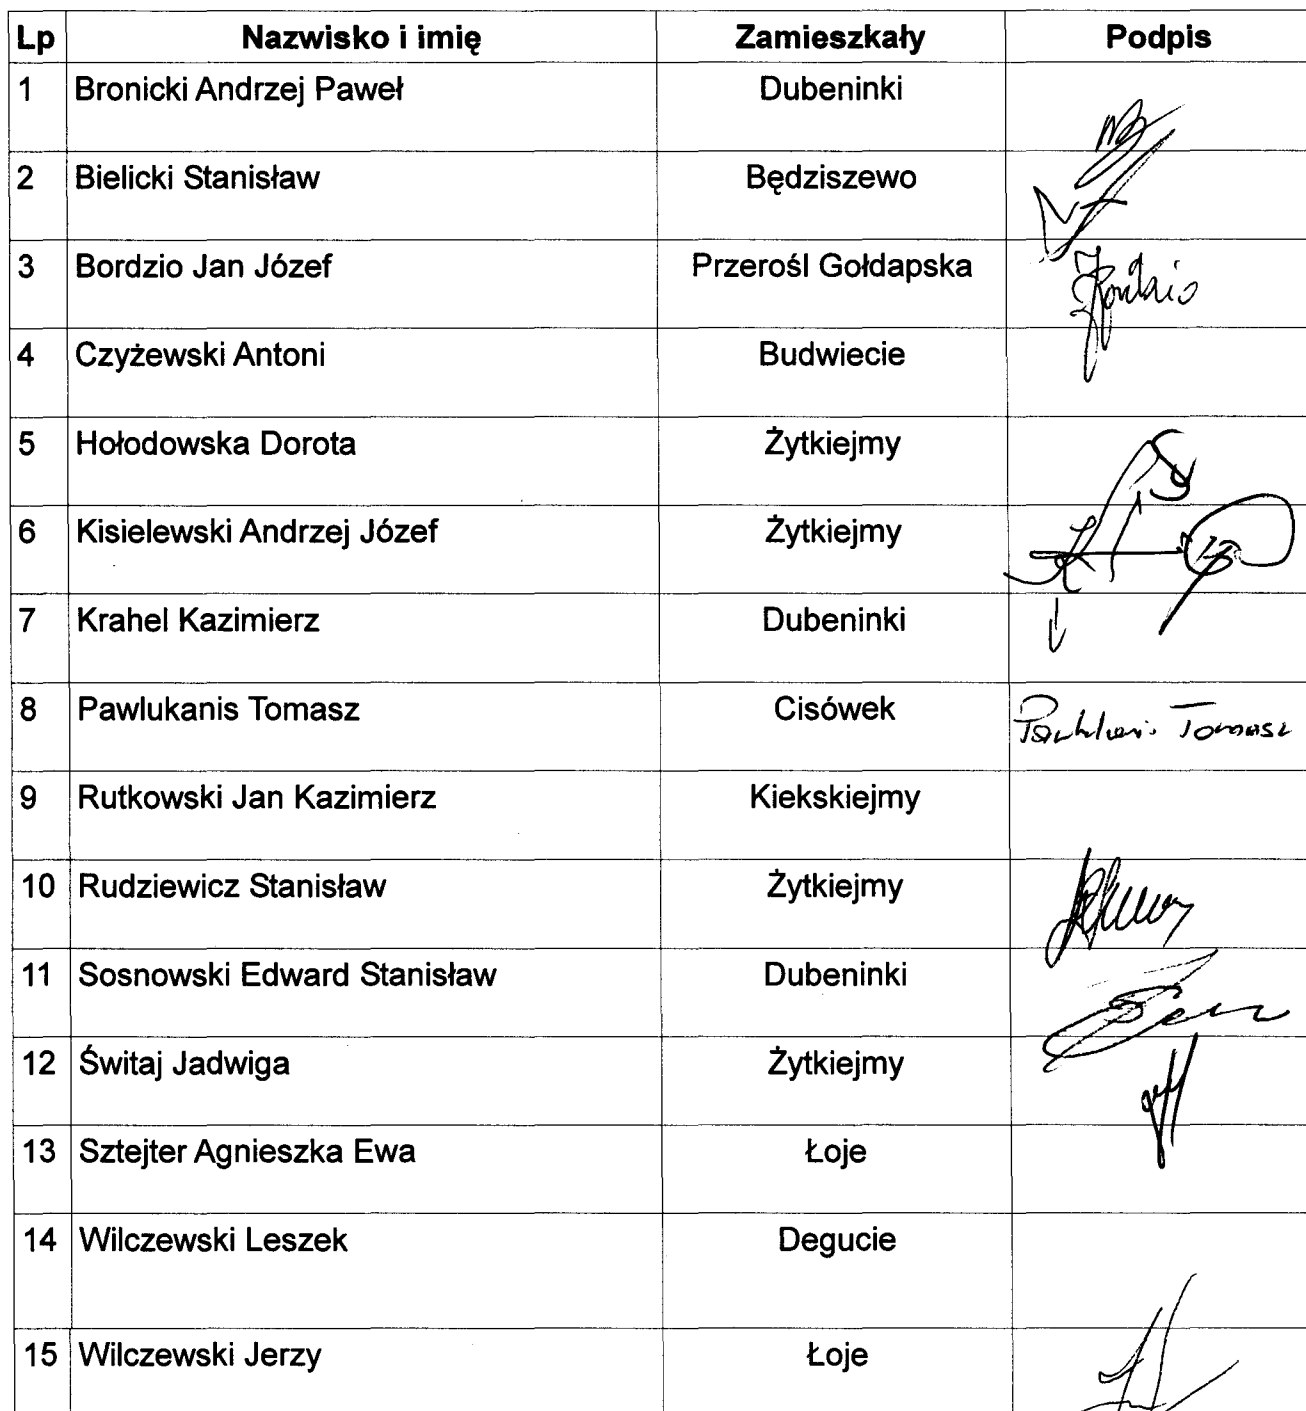 Lp Nazwisko i imię Zamieszkały Podpis
1 Bronicki Andrzej Paweł Dubeninki
2 Bielicki Stanisław Będziszewo
3 Bordzio Jan Józef Przerośl Gołdapska
4 Czyżewski Antoni Budwiecie
5 Hołodowska Dorota Żytkiejmy
6 Kisielewski Andrzej Józef Żytkiejmy
7 Krahel Kazimierz Dubeninki
8 Pawlukanis Tomasz Cisówek Tomasz
9 Rutkowski Jan Kazimierz Kiekskiejmy
10 Rudziewicz Stanisław Żytkiejmy
11 Sosnowski Edward Stanisław Dubeninki
12 Świtaj Jadwiga Żytkiejmy
13 Sztejter Agnieszka Ewa Łoje
14 Wilczewski Leszek Degucie
15 Wilczewski Jerzy Łoje